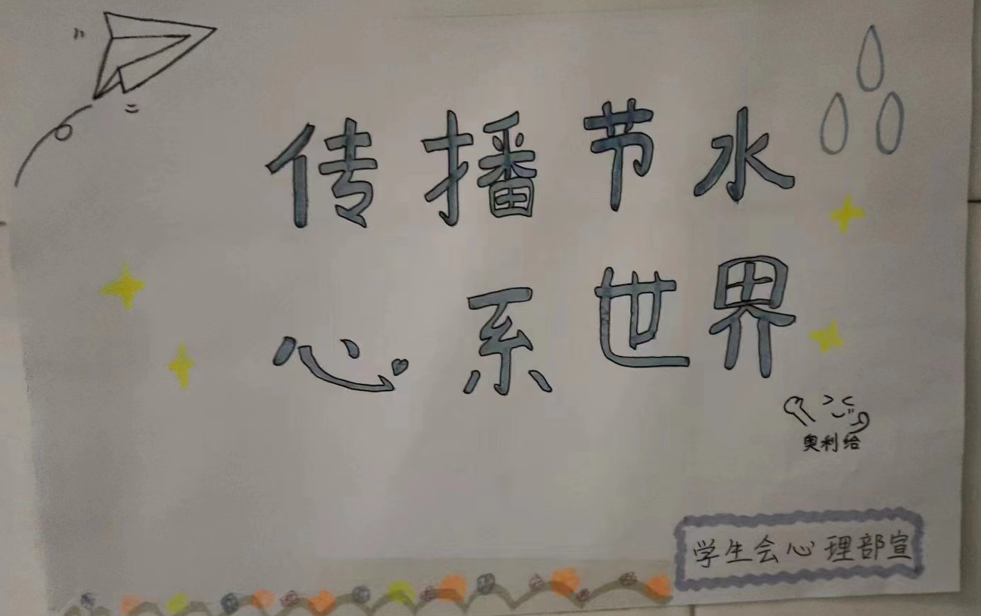 传播节水
心系世界
奥利给
学生会心理部宣